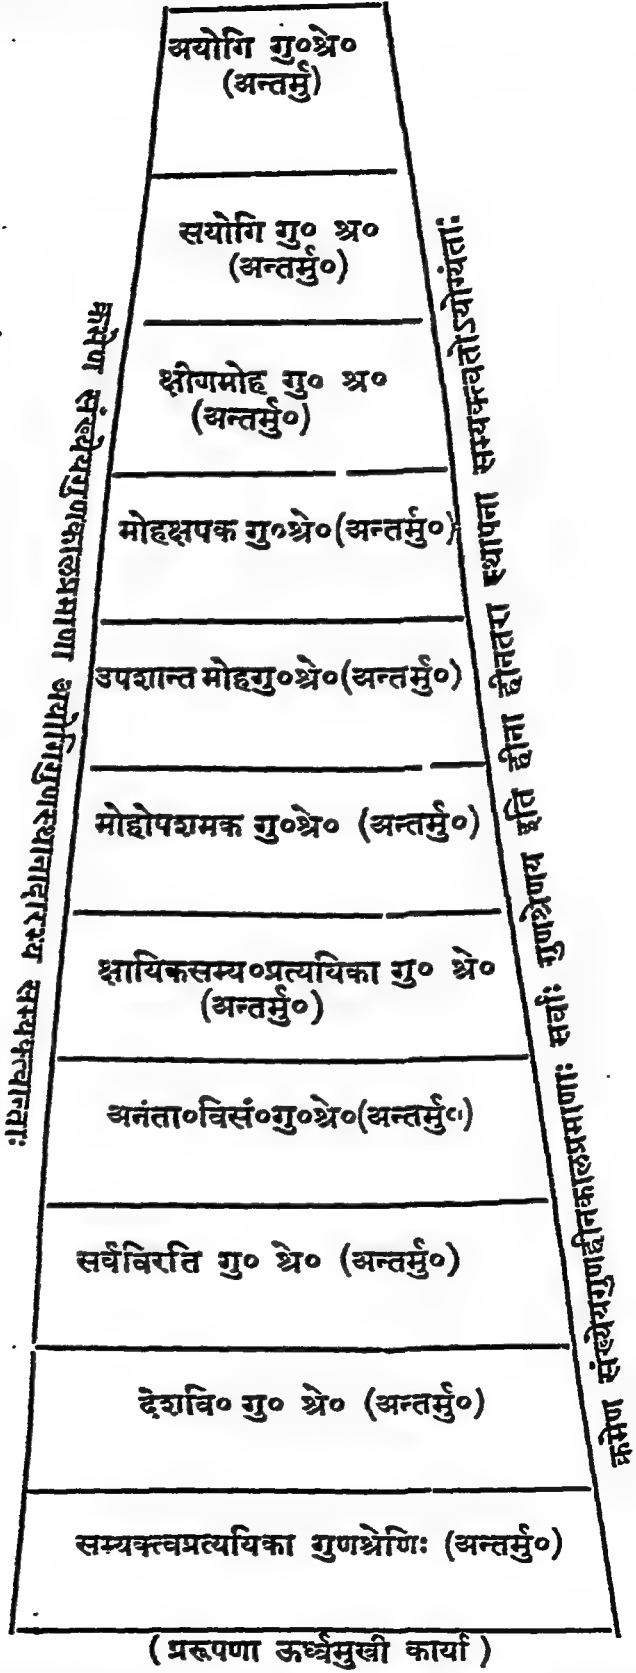 अयोगि गु०श्रे०
(अन्तर्मु)
सयोगि गु० श्र०
(अन्तर्मु०)
क्षीणमोह गु० श्र०
(अन्तर्मु०)
मोहक्षपक गु०श्रे०(अन्तर्मु०)
उपशान्त मोहगु०श्रे०(अन्तर्मु०)
मोहोपशमक गु०श्रे० (अन्तर्मु०)
क्षायिकसम्य०प्रत्ययिका गु० श्रे०
(अन्तर्मु०)
अनंता०विसं०गु०श्रे०(अन्तर्मु०)
सर्वविरति गु० श्रे० (अन्तर्मु०)
देशवि० गु० श्रे० (अन्तर्मु०)
सम्यक्त्वप्रत्ययिका गुणश्रेणिः (अन्तर्मु०)
(प्ररूपणा ऊर्ध्वमुखी कार्या)
क्रमेण संख्येयगुणकालप्रमाणा अयोगिगुणस्थानादारभ्य सम्यक्त्वान्ताः
क्रमेण संख्येयगुणहीनकालप्रमाणाः सर्वाः गुणश्रेणय इति हीना हीनतरा स्थापना सम्यक्त्वतोऽयोग्यंताः